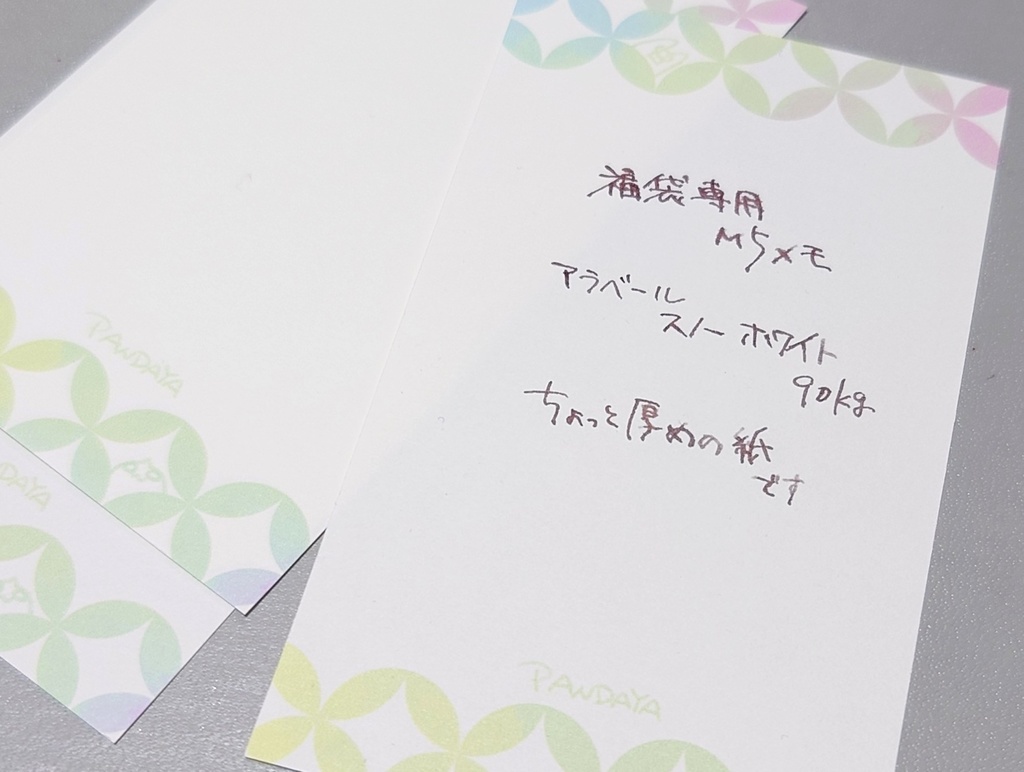 福袋専用
M5メモ
アラベール
スノーホワイト
90kg
ちょっと厚めの紙
です
PANDAYA
PANDAYA
NDAYA